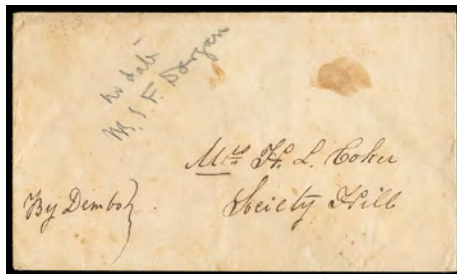 no date
W. S. F. Dargan
Mrs H. L. Coker
Society Hill
By Dembo